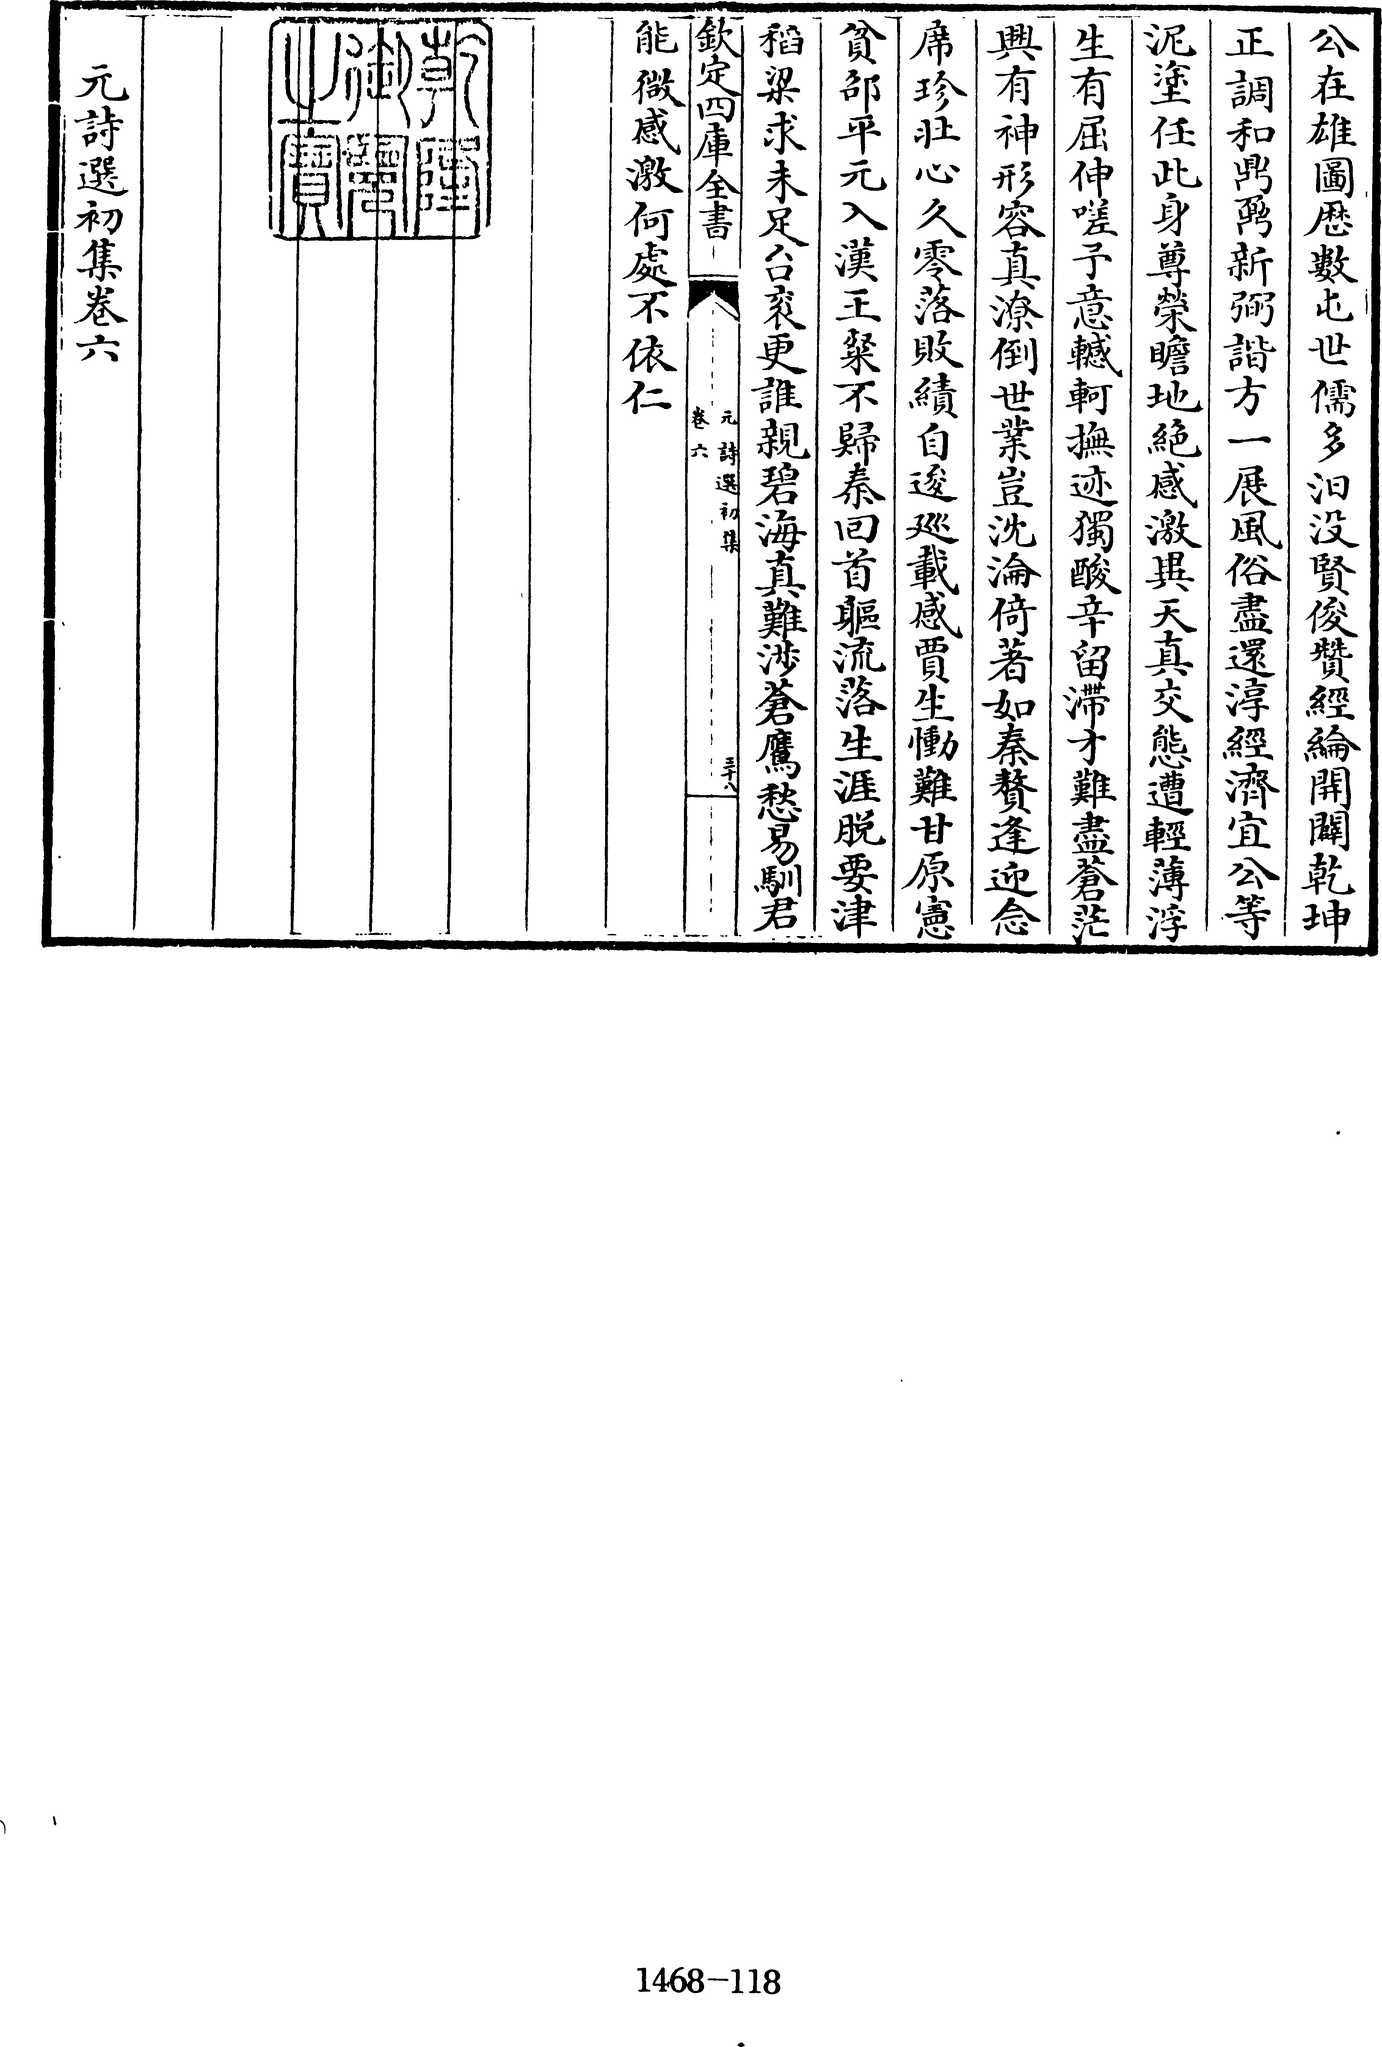 公在雄圖歴數屯世儒多汩没賢俊贊經綸開闢乾坤
正調和鼎鼐新弼諧方一展風俗盡還淳經濟宜公等
泥塗任此身尊榮瞻地絶感激異天真交態遭輕薄浮
生有屈伸嗟予意轗軻撫迹獨酸辛留滯才難盡蒼茫
興有神形容真潦倒世業豈沈淪倚著如秦贅逢迎念
席珍壯心久零落敗績自逡廵載感賈生慟難甘原憲
貧邵平元入漢王粲不歸秦回首軀流落生涯脱要津
稻粱求未足台衮更誰親碧海真難涉蒼鷹愁易馴君
欽定四庫全書
元詩選初集
卷六
三十八
能微感激何處不依仁
乾隆御覽之寶
元詩選初集卷六
1468-118